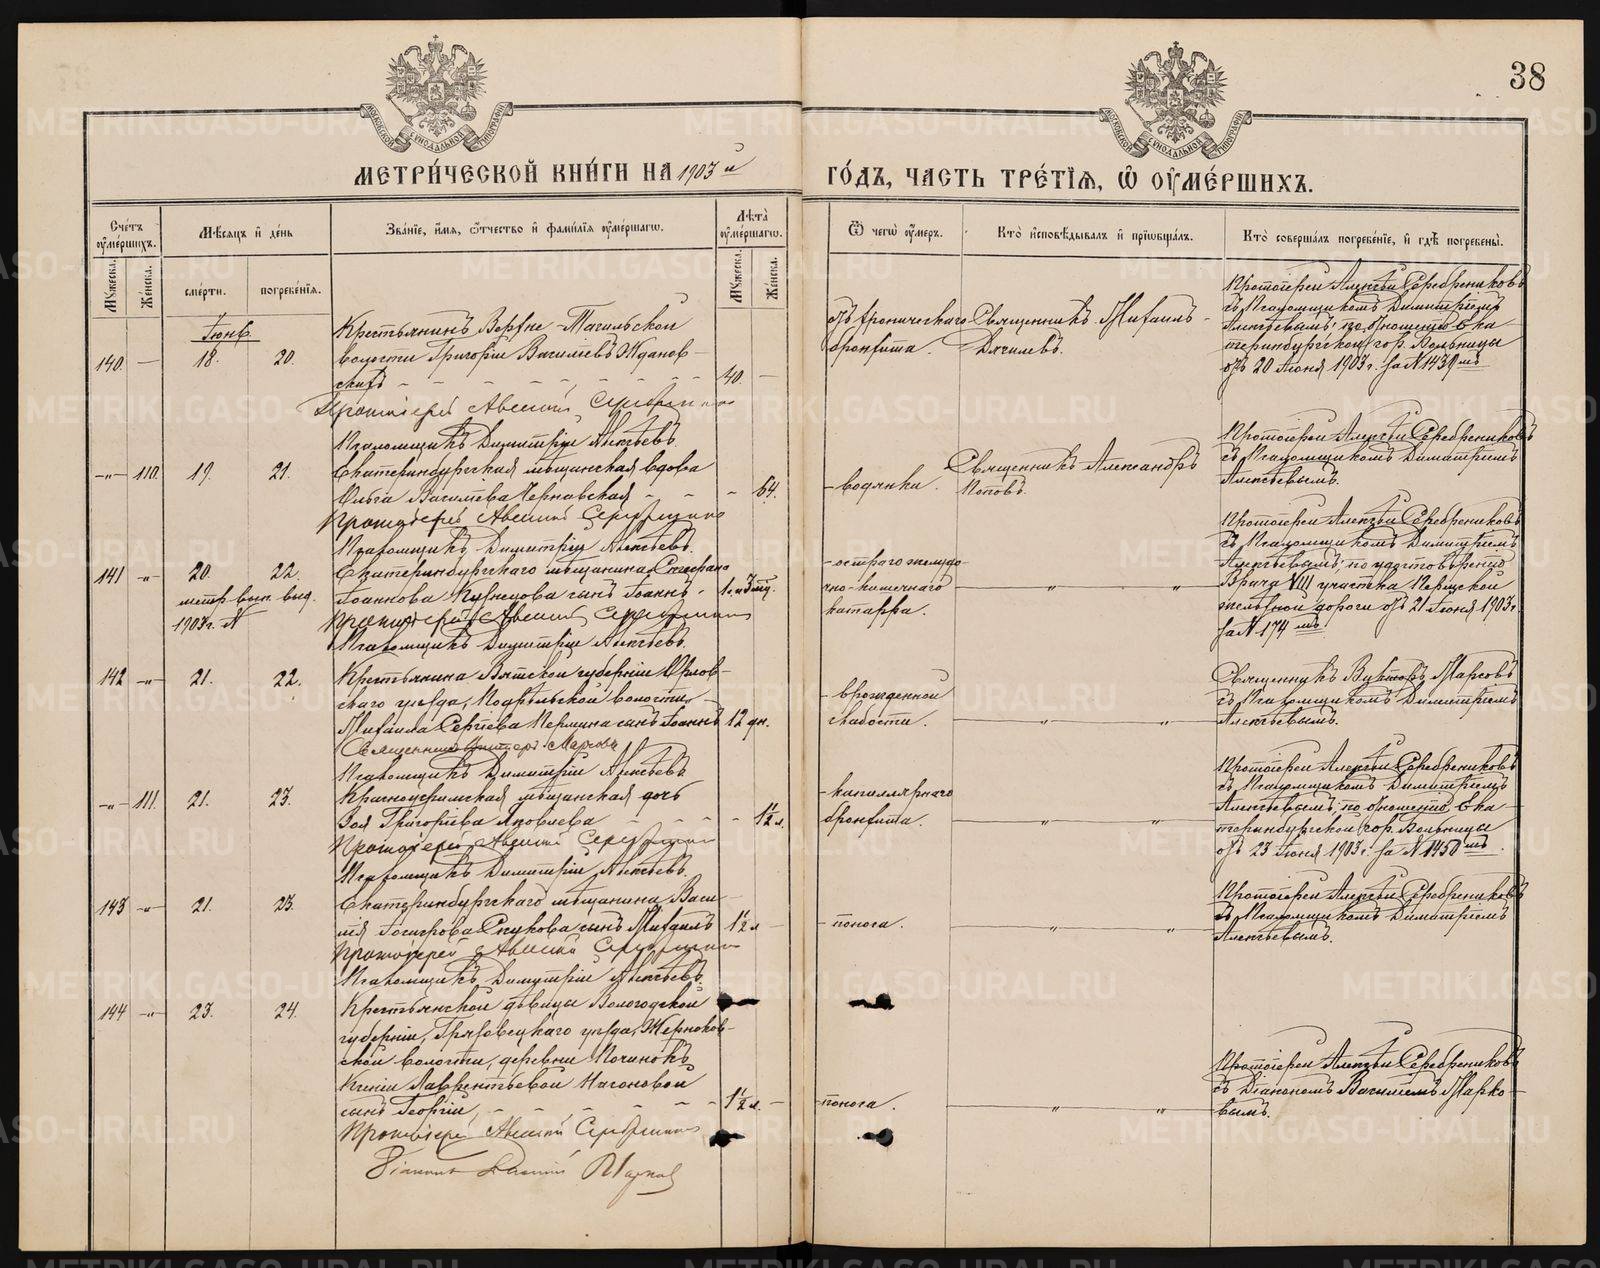 38
МЕТРИ́ЧЕСКОЙ КНИ́ГИ НА 1903 й
ГО́ДЪ, ЧАСТЬ ТРЕ́ТІѦ, Ѿ ОУМЕ́РШИХЪ.
МОСКОВСКОЙ СИНОДАЛЬНОЙ ТИПОГРАФІИ
МОСКОВСКОЙ СИНОДАЛЬНОЙ ТИПОГРАФІИ
Сче́тъ оуме́ршихъ.
Мѣсяцъ и де́нь
Зва́ніе, и́мя, ѻ́тчество и фами́лія оуме́ршагѡ.
Лѣта̀ оуме́ршагѡ.
Ѿ чегѡ̀ оу́меръ.
Кто̀ исповѣ́дывалъ и пріѡбща́лъ.
Кто̀ соверша́лъ погребе́ніе, и гдѣ̀ погребены̀.
Мꙋжеска.
Же́нска.
сме́рти.
погребе́нія.
Мꙋжеска.
Же́нска.
Іюнь
140. — 18. 20.
Крестьянинъ Верхне-Тагильской
волости Григорій Васильевъ Жданов-
скихъ 40. —
Протоіерей Алексій Серебренниковъ
Псаломщикъ Димитрій Алексѣевъ.
отъ хроническаго
бронхита.
Священникъ Михаилъ
Дягилевъ.
Протоіерей Алексѣй Серебрениковъ
съ Псаломщикомъ Димитріемъ
Алексѣевымъ; по отношенію Ека-
теринбургской гор. Больницы
отъ 20 Іюня 1903 г. за № 1439 мъ
-"- 110. 19. 21.
Екатеринбургская мѣщанская вдова
Ольга Васильева Чернавская - 64.
Протоіерей Алексій Серебренниковъ
Псаломщикъ Димитрій Алексѣевъ.
- водянки.
Священникъ Александръ
Поповъ.
Протоіерей Алексѣй Серебрениковъ
съ Псаломщикомъ Димитріемъ
Алексѣевымъ.
141 -"- 20. 22.
метр. вып. выд.
1907 г. №
Екатеринбургскаго мѣщанина
Іоаннова Кузнецова сынъ Іоаннъ
Протоіерей Алексій Серебренниковъ
Псаломщикъ Димитрій Алексѣевъ.
- остраго желудо
чно-кишечнаго
катарра.
" "
Протоіерей Алексѣй Серебрениковъ
съ Псаломщикомъ Димитріемъ
Алексѣевымъ; по удостовѣренію
Врача VIII участка Пермской
желѣзной дороги отъ 21 Іюня 1903 г.
за № 174 мъ
142 -"- 21. 22.
Крестьянина Вятской губерніи Орлов-
скаго уѣзда, волости
Михаила Сергіева Пермина сынъ Іоаннъ 12 дн.
Священникъ Викторъ Марсовъ
Псаломщикъ Димитрій Алексѣевъ
- врожденной
слабости.
" "
Священникъ Викторъ Марсовъ
съ Псаломщикомъ Димитріемъ
Алексѣевымъ.
-"- 111. 21. 23.
Красноуфимская мѣщанская дочь
Зоя Григоріева Яковлева - 1½ л.
Протоіерей Алексій Серебренниковъ
Псаломщикъ Димитрій Алексѣевъ.
- капиллярнаго
бронхита.
" "
Протоіерей Алексѣй Серебрениковъ
съ Псаломщикомъ Димитріемъ
Алексѣевымъ; по отношенію Ека-
теринбургской гор. Больницы
отъ 23 Іюня 1903 г. за № 1450 мъ.
143 -"- 21. 23.
Екатеринбургскаго мѣщанина Васи-
лія сынъ Михаилъ 1½ л -
Протоіерей Алексій Серебренниковъ
Псаломщикъ Димитрій Алексѣевъ.
- поноса.
" "
Протоіерей Алексѣй Серебрениковъ
съ Псаломщикомъ Димитріемъ
Алексѣевымъ.
144 -"- 23. 24.
Крестьянской дѣвицы Вологодской
губерніи, Грязовецкаго уѣзда,
ской волости, деревни Починокъ
Ксеніи Лаврентьевой
сынъ Георгій 1½ л. -
Протоіерей Алексій Серебренниковъ
Діаконъ Василій Марковъ
- поноса.
" "
Протоіерей Алексѣй Серебрениковъ
съ Діакономъ Василіемъ Марко-
вымъ.
METRIKI.GASO-URAL.RU